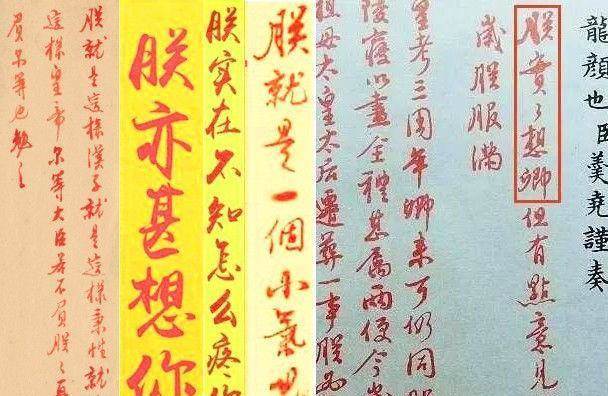 龍顏也臣羹堯謹奏
朕實々想卿但有點意見
歲朕服滿
皇考三周年卿来了仍同
陵寢以盡全禮甚屬兩便今
祖母太皇太后遷葬一事朕
朕就是一個小氣
朕实在不知怎么疼你
朕亦甚想你
朕就是這樣漢子就是這樣秉性就
這樣皇帝尔等大臣若不負朕々再
負尔等也勉之